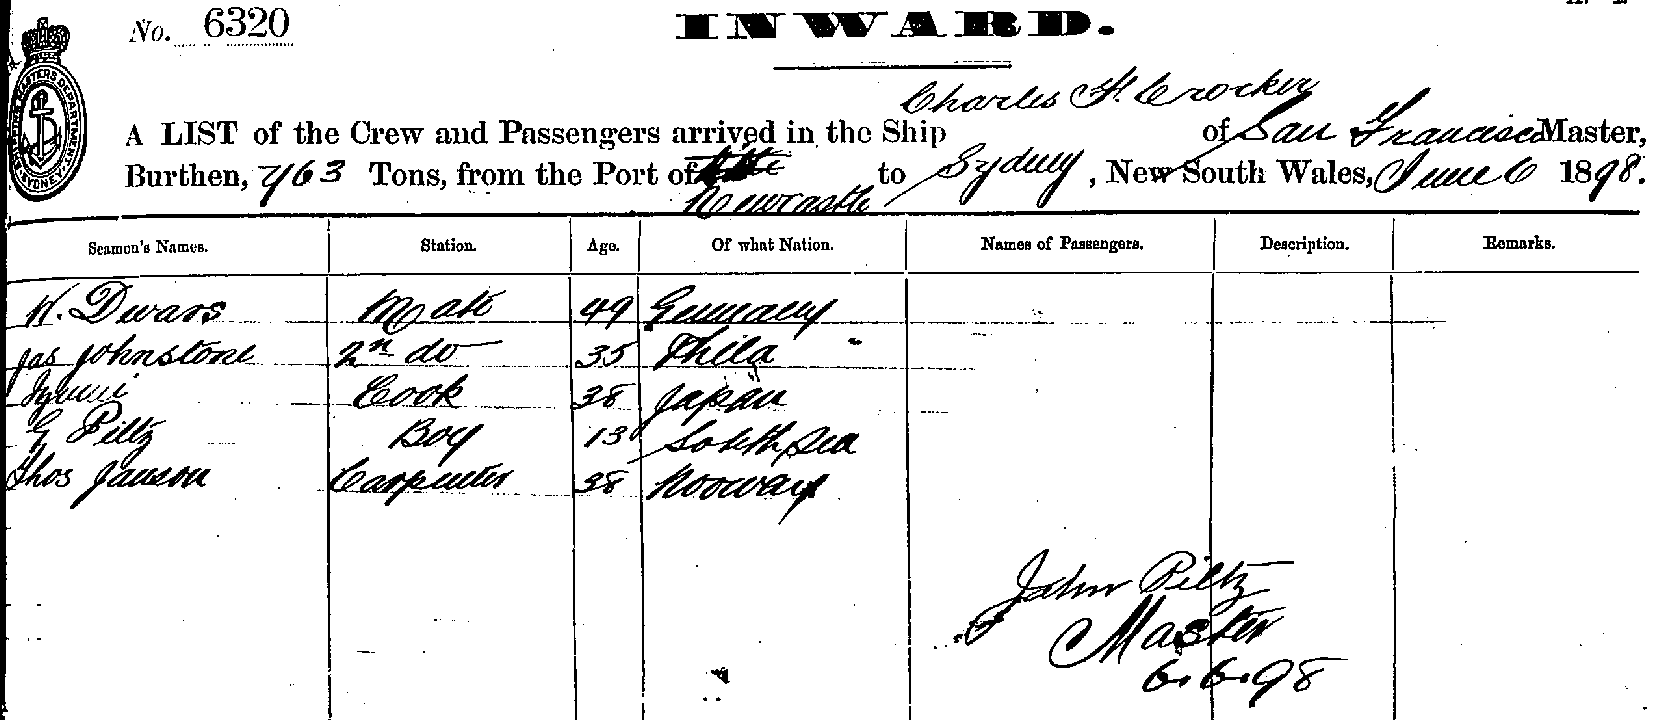 No. 6320
INWARD.
Charles F. Crocker
A LIST of the Crew and Passengers arrived in the Ship of San Francisco Master,
Burthen, 763 Tons, from the Port of Newcastle to Sydney, New South Wales, June 6 1898.
Seamen's Names. Station. Age. Of what Nation. Names of Passengers. Description. Remarks.
W. Dwars Mate 49 Germany
Jas Johnstone 2nd do 35 Phila
Cook 38 Japan
E Piltz Boy 13 South Sea
Thos Janson Carpenter 38 Norway
John Piltz
Master
6.6.98